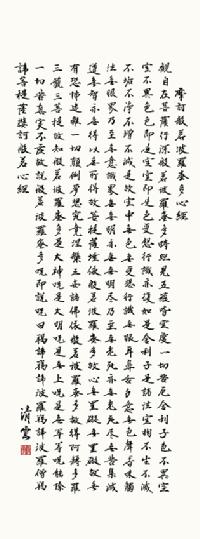 摩訶般若波羅蜜多心經
觀自在菩薩行深般若波羅蜜多時照見五蘊皆空度一切苦厄舍利子色不異空
空不異色色即是空空即是色受想行識亦復如是舍利子是諸法空相不生不滅
不垢不淨不增不減是故空中無色無受想行識無眼耳鼻舌身意無色聲香味觸
法無眼界乃至無意識界無無明亦無無明盡乃至無老死亦無老死盡無苦集滅
道無智亦無得以無所得故菩提薩埵依般若波羅蜜多故心無罣礙無罣礙故無
有恐怖遠離一切顛倒夢想究竟涅槃三世諸佛依般若波羅蜜多故得阿耨多羅
三藐三菩提故知般若波羅蜜多是大神咒是大明咒是無上咒是無等等咒能除
一切苦真實不虛故說般若波羅蜜多咒即說咒曰揭諦揭諦波羅揭諦波羅僧揭
諦菩提薩婆訶般若心經
清雲